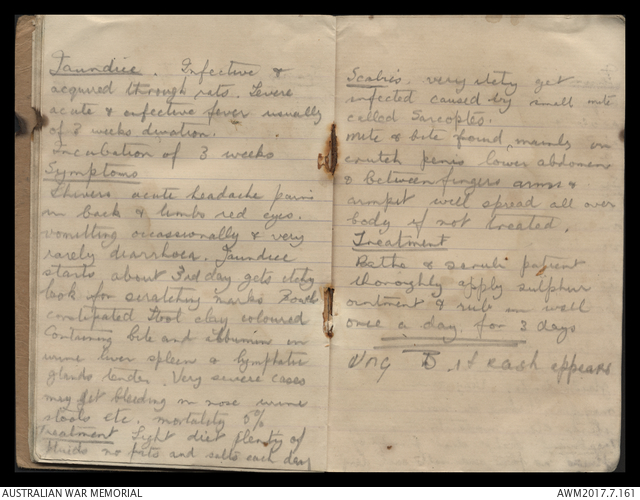 Jaundice. Infective &
acquired through rats. Severe
acute & infective fever usually
of 8 weeks duration.
Incubation of 3 weeks
Symptoms
Shivers acute headache pains
in back & limbs red eyes.
vomitting occassionally & very
rarely diarrhoea. Jaundice
starts about 3rd day gets itchy
look for scratching marks
constipated stool clay coloured
Containing bile and albumin in
urine liver spleen & lymphatic
glands tender. Very severe cases
may get bleeding in nose urine
stools etc. mortality 5%
Treatment Light diet plenty of
fluids no fats and salts each day
Scabies. very itchy get
infected caused by small mite
called Sarcoptes.
mite & bite found mainly in
crutch penis lower abdomen
& between fingers arms &
armpit will spread all over
body if not treated.
Treatment
Bathe & scrub patient
thoroughly apply sulphur
ointment & rub in well
once a day for 3 days
Ung if rash appears
AUSTRALIAN WAR MEMORIAL
AWM2017.7.161